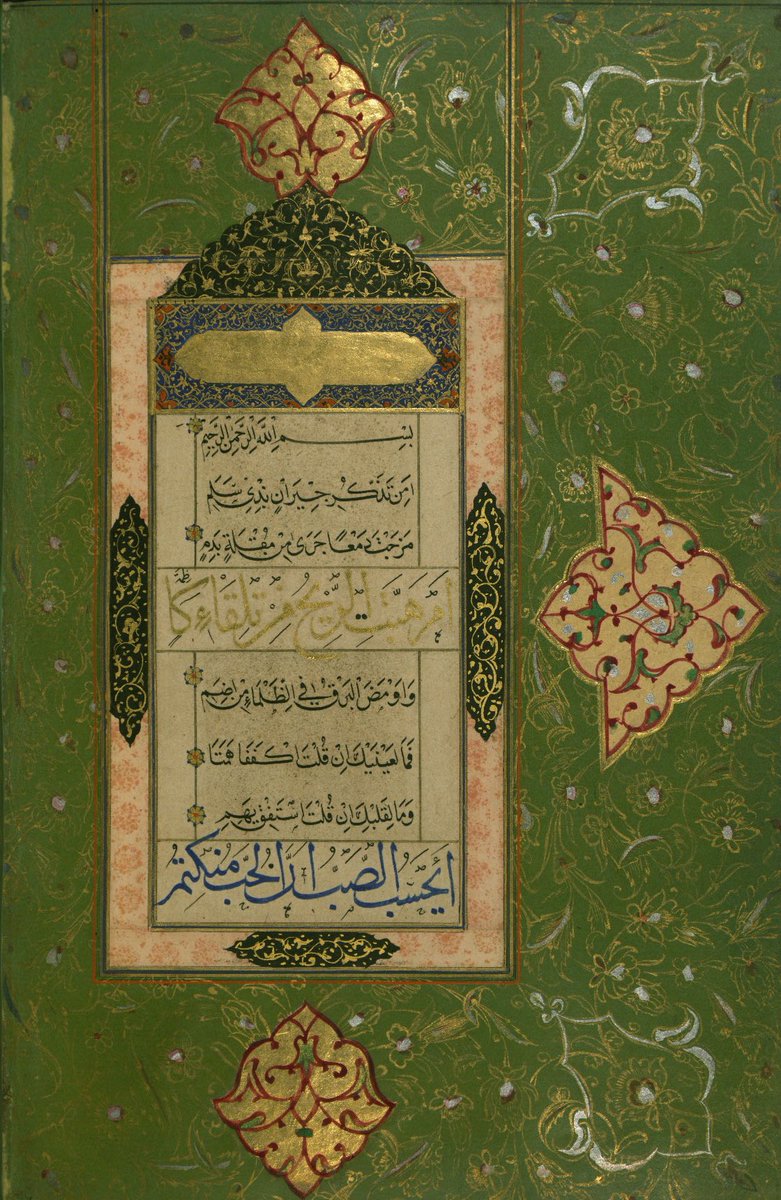 بِسْمِ اللّٰهِ الرَّحْمٰنِ الرَّحِيمِ
اَمِنْ تَذَكُّرِ جِيرَانٍ بِذِى سَلَمِ
مَزَجْتَ دَمْعًا جَرَى مِنْ مُقْلَةٍ بِدَمِ
اَمْ هَبَّتِ الرِّيحُ مِنْ تِلْقَاءِ كَاظِمَةٍ
وَاَوْمَضَ الْبَرْقُ فِي الظَّلْمَاءِ مِنْ اِضَمِ
فَمَا لِعَيْنَيْكَ اِنْ قُلْتَ اكْفُفَا هَمَتَا
وَمَا لِقَلْبِكَ اِنْ قُلْتَ اسْتَفِقْ يَهِمِ
اَيَحْسَبُ الصَّبُّ اَنَّ الْحُبَّ مُنْكَتِمٌ